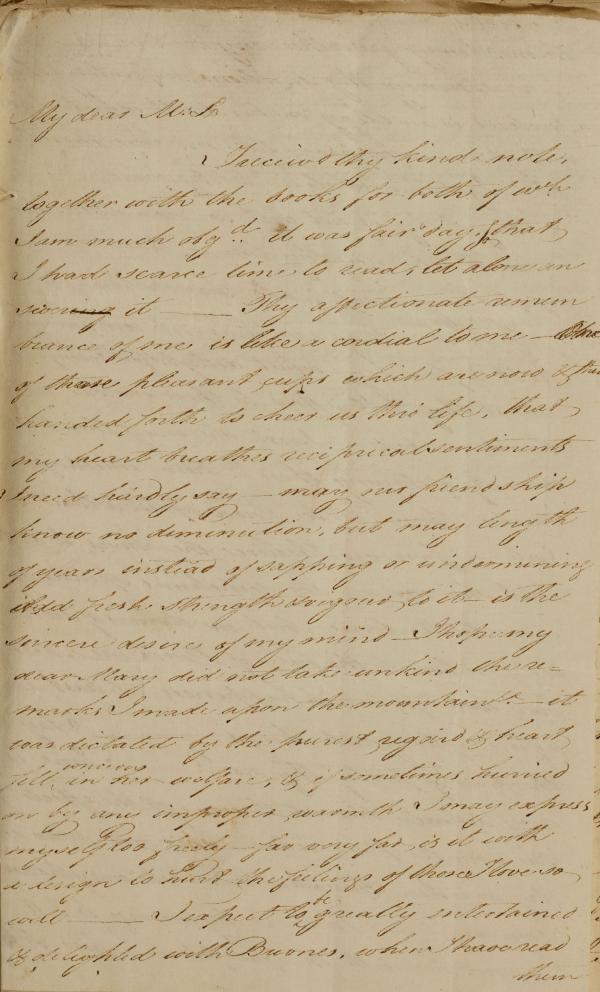 My dear M. L
I receiv'd thy kind note,
together with the books for both of wh
I am much obgd. it was fair day, so that
I had scarce time to read, let alone an
swering it —— Thy affectionate remem
brance of me is like a cordial to me — One
of those pleasant cups which are now & then
handed forth to cheer us thro life, that
my heart breathes reciprical sentiments
I need hardly say — may our friendship
know no diminution, but may length
of years instead of sapping or undermining
add fresh strength & vigour to it — is the
sincere desire of my mind — I hope my
dear Mary did not take unkind the re=
marks I made upon the mountain — it
was dictated by the purest regard & heart
felt concern in her welfare, & if sometimes hurried
on by any improper warmth I may express
myself too freely — far very far, is it with
a design to hurt the feelings of those I love so
well —— I expect to be greatly entertained
& delighted with Burnes, when I have read
them